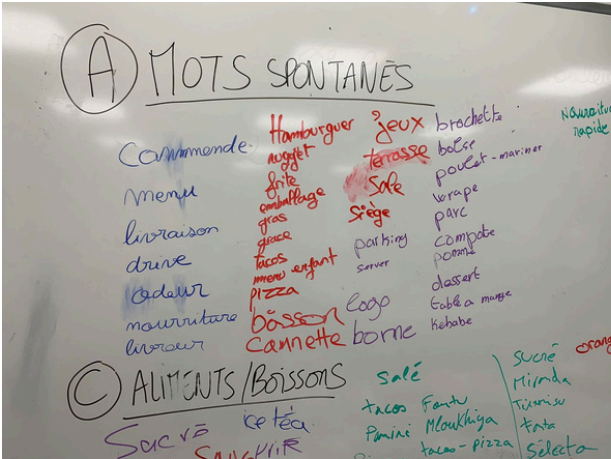 A MOTS SPONTANÉS
Commende
menu
livraison
drive
odeur
nourriture
livreur
Hamburguer
nugget
frite
emballage
gras
glace
tacos
menu enfant
pizza
bâsson
Cannette
jeux
terrasse
Sale
siège
parking
server
logo
borne
brochette
poulet-mariner
wrape
parc
compote
pomme
dessert
table a mange
Kebabe
Nourritur
rapide
C ALIMENTS/BOISSONS
Sacré
ice téa
salé
tacos
Panini Mloukhiya
tacos-pizza
Sucré
Mirinda
Tiramisu
Fanta
Sélecto
orang